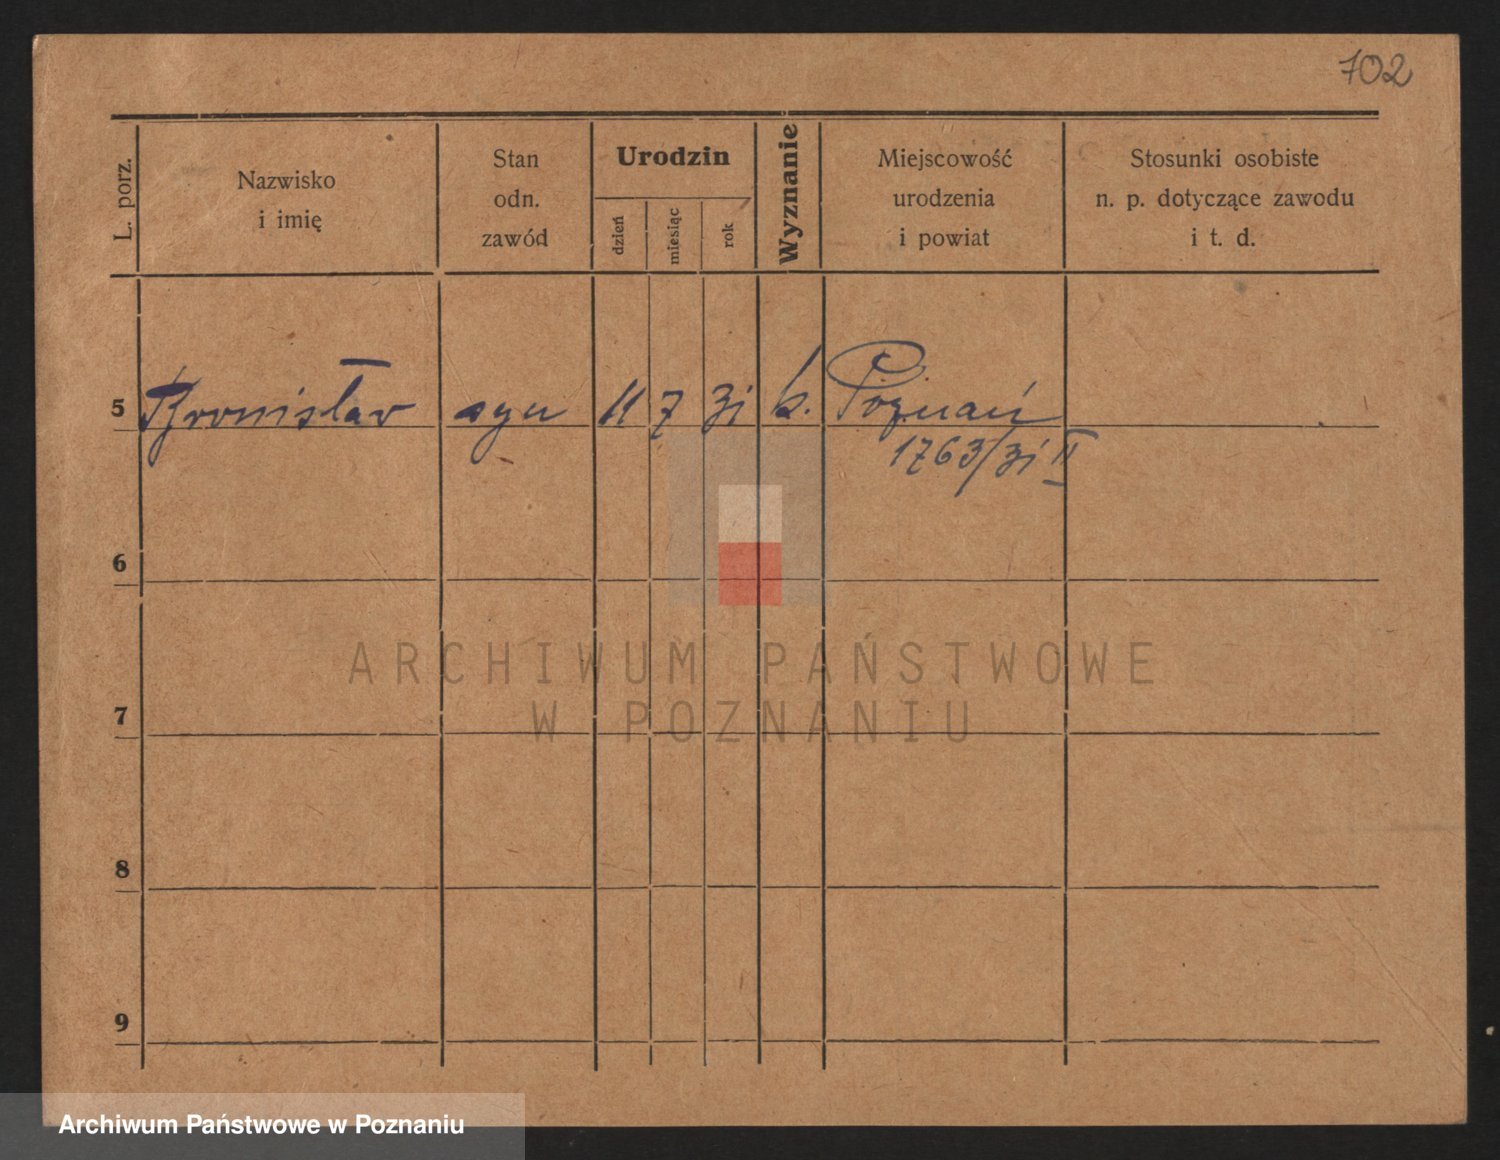 702
L. porz.
Nazwisko
i imię
Stan
odn.
zawód
Urodzin
dzień
miesiąc
rok
Wyznanie
Miejscowość
urodzenia
i powiat
Stosunki osobiste
n. p. dotyczące zawodu
i t. d.
5 Bronisław syn 11 7 31 k. Poznań
1763/31 II
6
7
8
9
ARCHIWUM PAŃSTWOWE
W POZNANIU
Archiwum Państwowe w Poznaniu